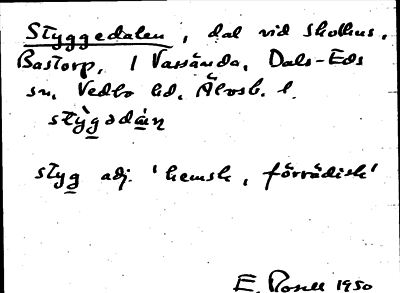 Styggedalen, dal vid skolhus,
Bastorp, 1 Vassända, Dals-Eds
sn, Vedbo hd, Älvsb. l.
stỳgədán
styg adj. 'hemsk, förrädisk'
E. Rosell 1950